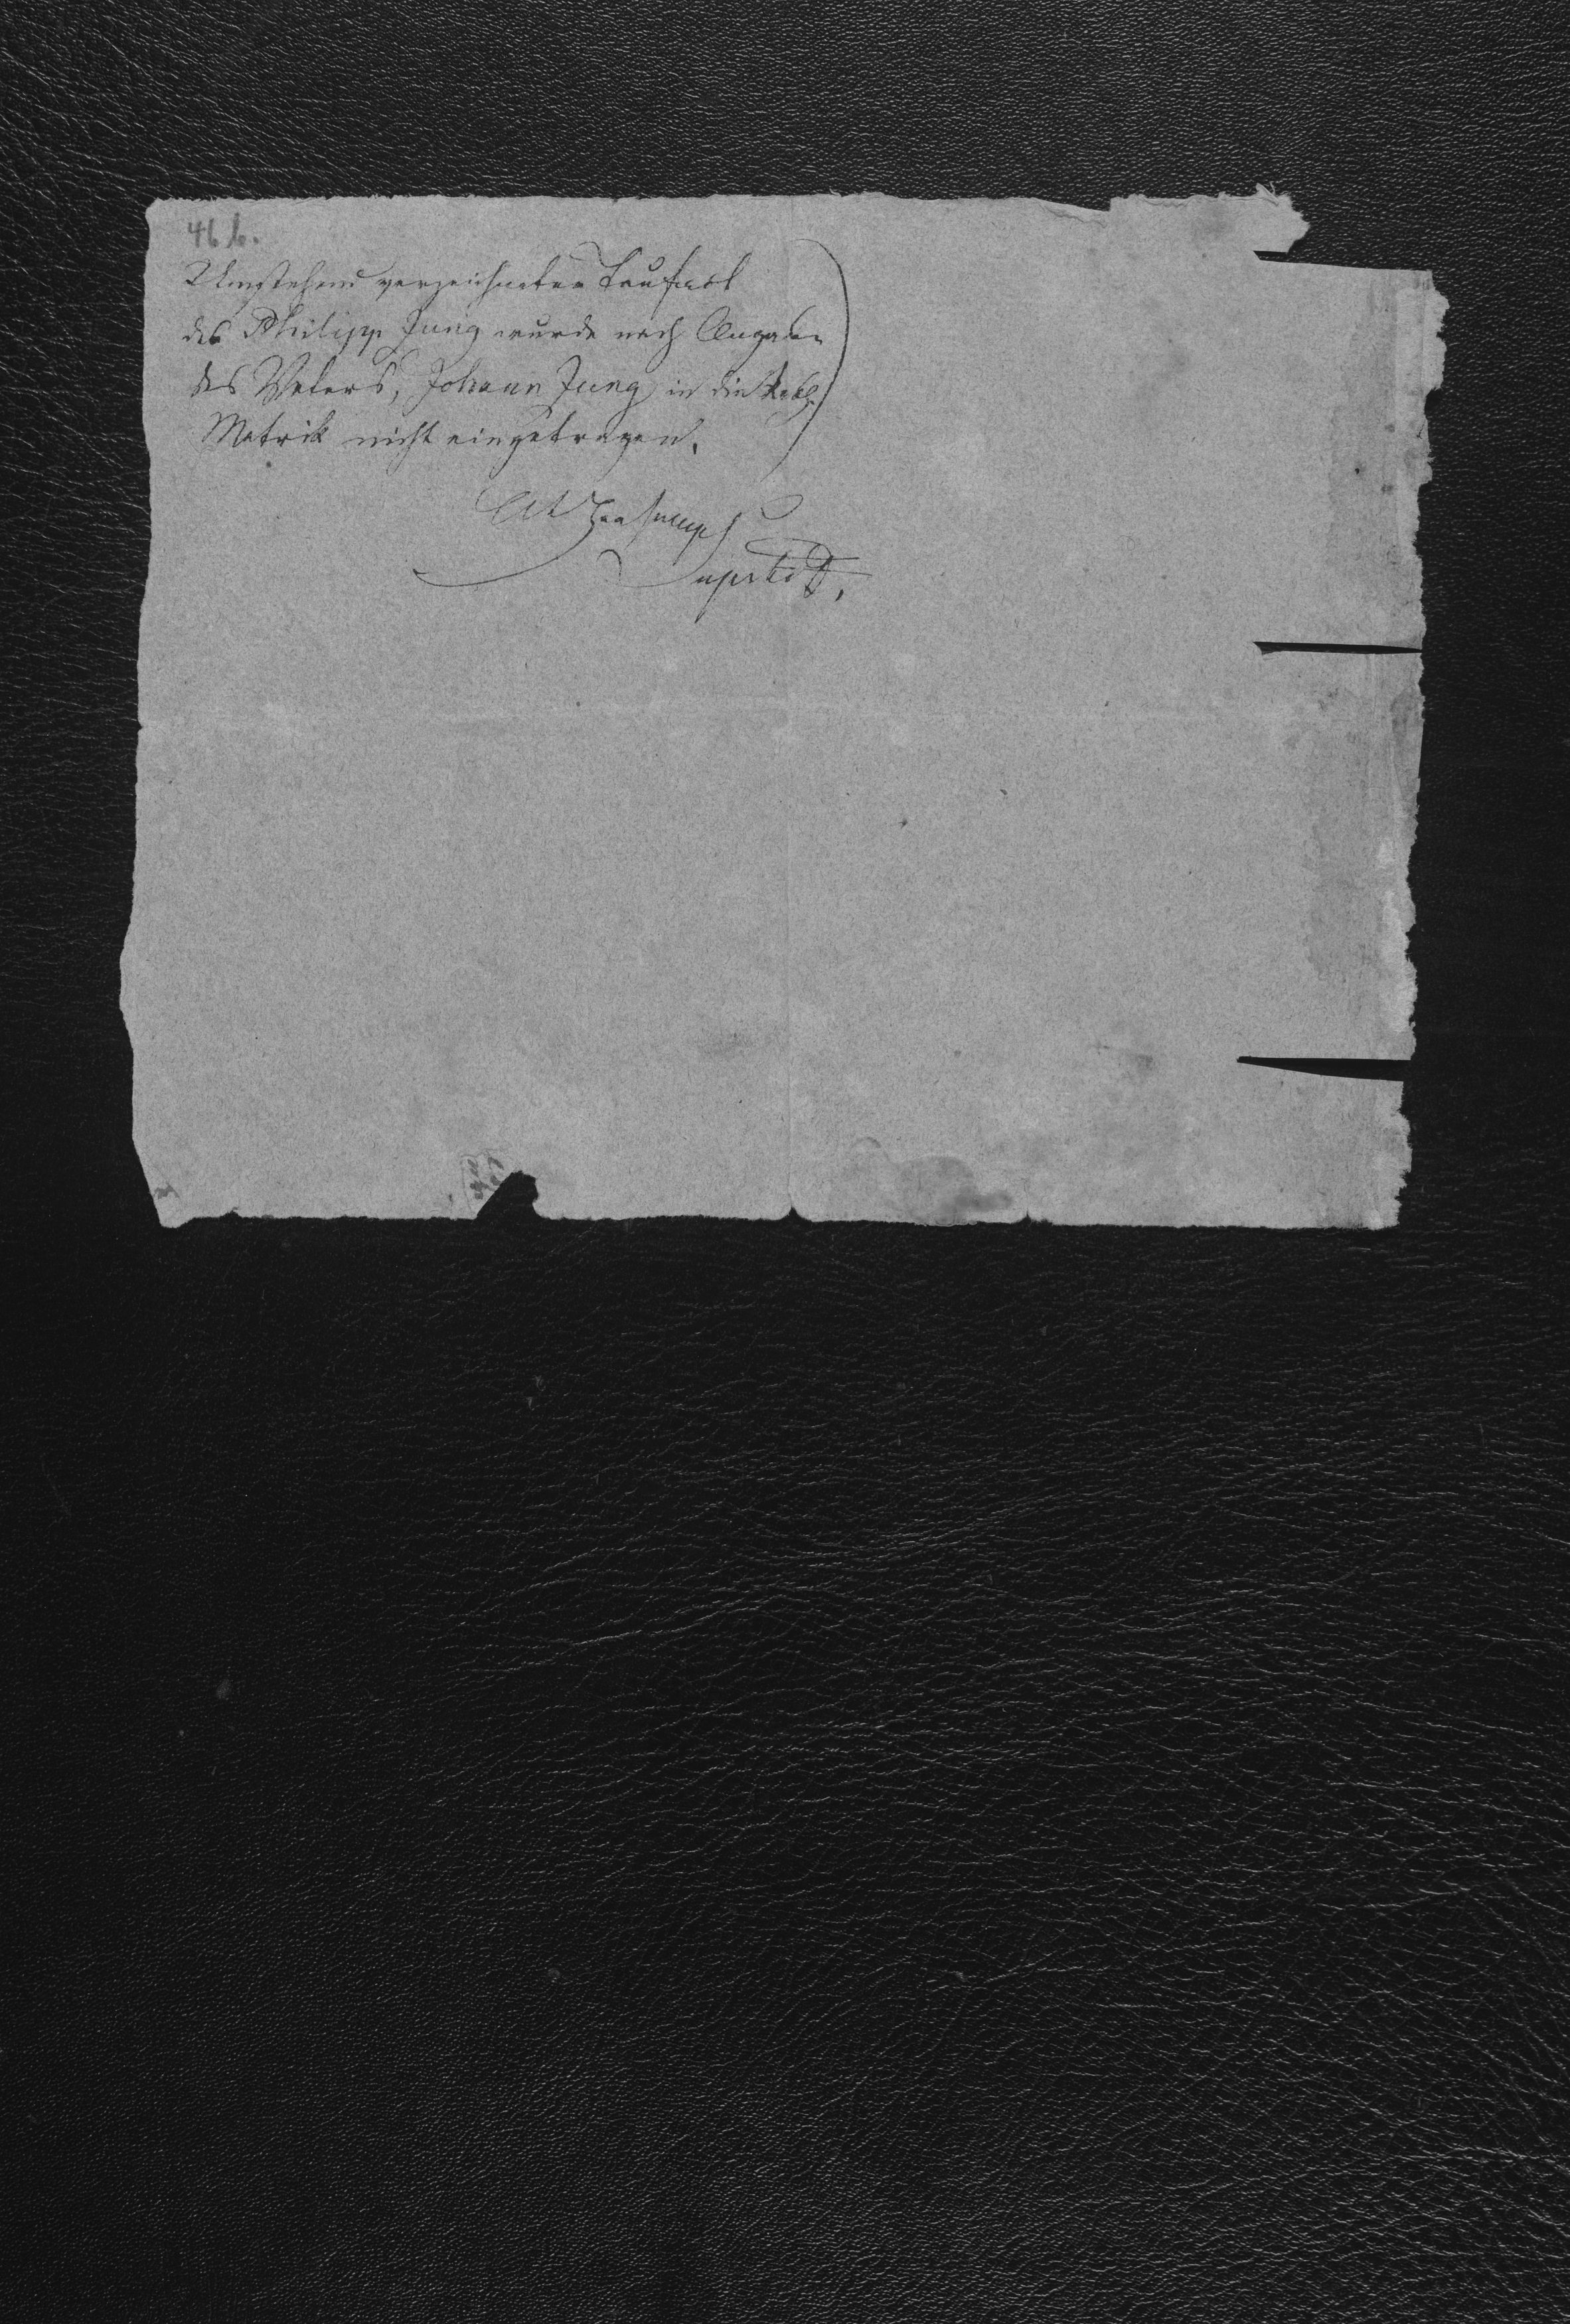 46 b.
Umstehend verzeichneter Taufact
des Philipp Jung wurde nach Angabe
des Vaters, Johann Jung in die
Matrik nicht eingetragen.